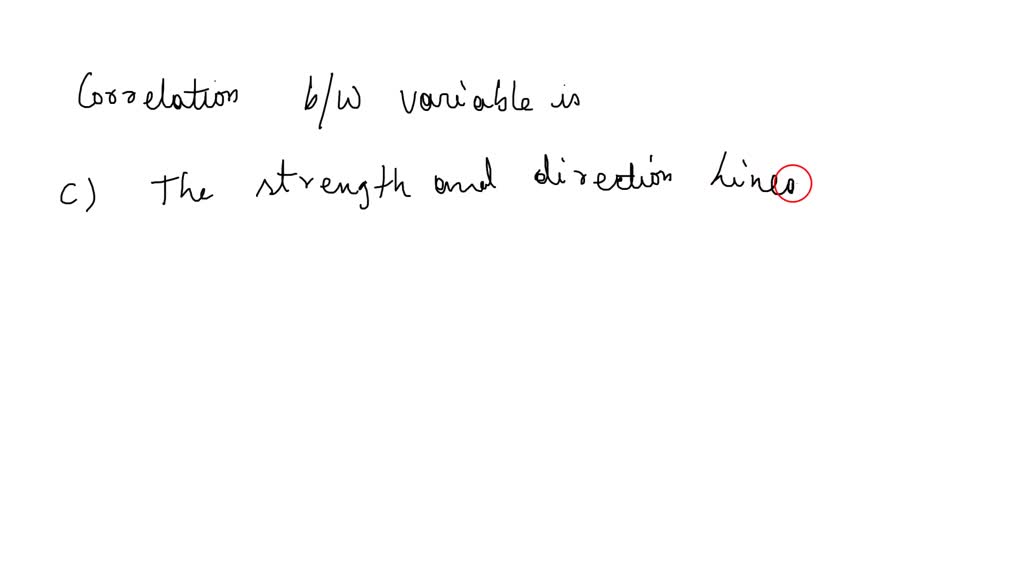 Correlation b/w variable is
c) The strength and direction Linea